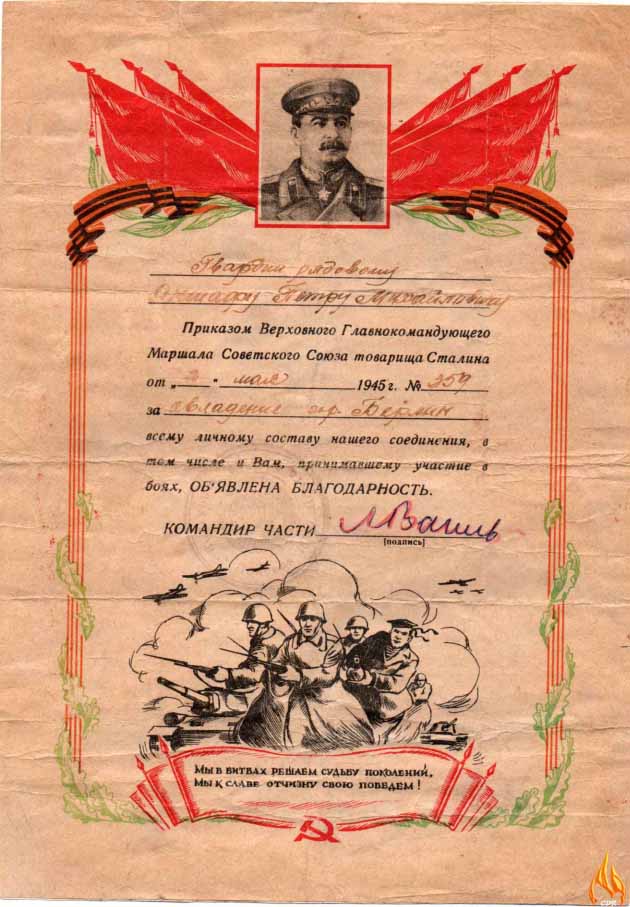 Гвардии рядовому
Петру Михайловичу
Приказом Верховного Главнокомандующего
Маршала Советского Союза товарища Сталина
от „2" мая 1945 г. № 359
за овладение гор. Берлин
всему личному составу нашего соединения, в
том числе и Вам, принимавшему участие в
боях, ОБ'ЯВЛЕНА БЛАГОДАРНОСТЬ.
КОМАНДИР ЧАСТИ
[подпись]
Мы в битвах решаем судьбу поколений,
мы к славе отчизну свою поведем!
CDR